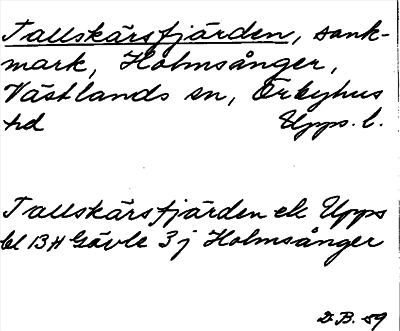 Tallskärsfjärden, sank-
mark, Holmsånger,
Västlands sn, Örbyhus
hd Upps. l.
Tallskärsfjärden ek Upps
bl 13H Gävle 3j Holmsånger
D.B. 59